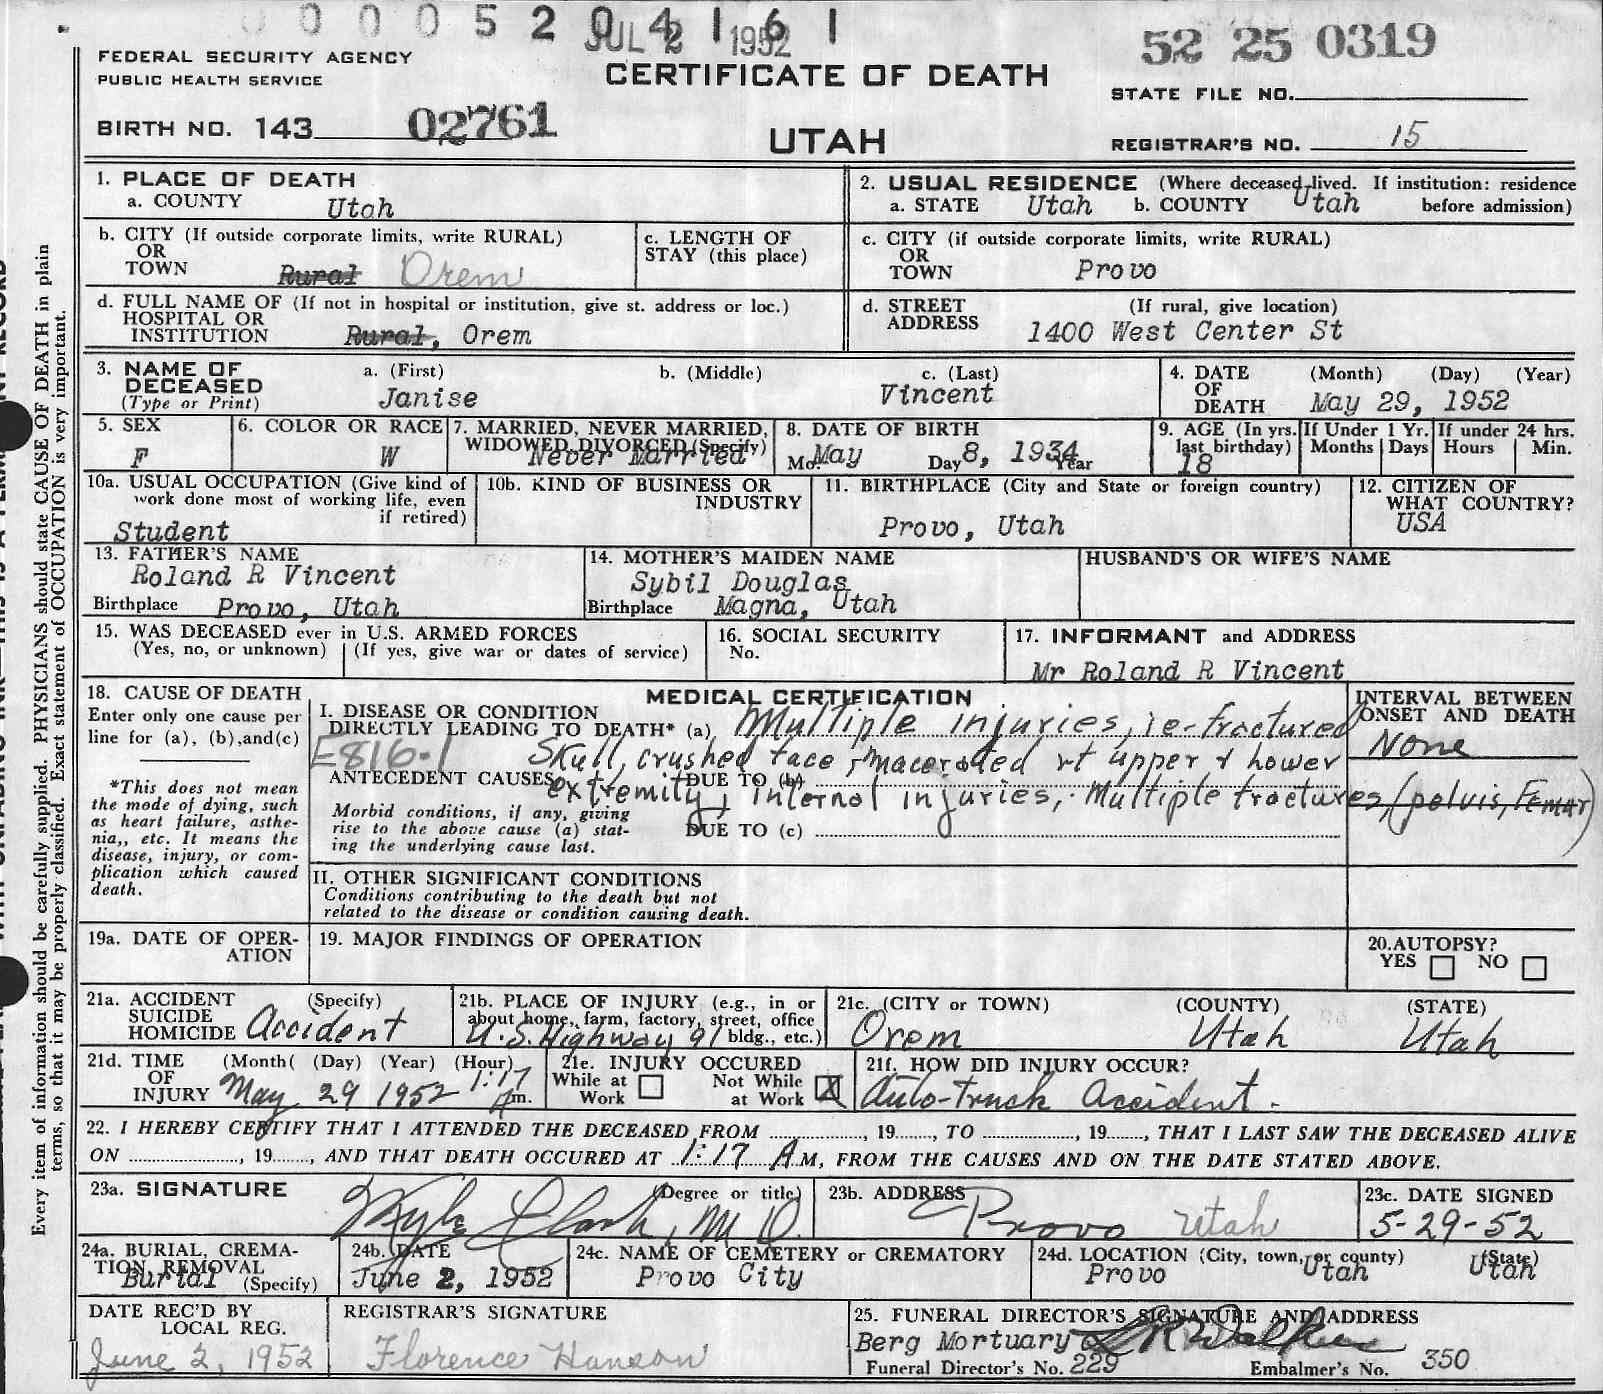 0 0 0 0 5 2 0 4 1 6 1
JUL 2 1952
52 25 0319
FEDERAL SECURITY AGENCY
PUBLIC HEALTH SERVICE
CERTIFICATE OF DEATH
STATE FILE NO.
BIRTH NO. 143 02761
UTAH
REGISTRAR'S NO. 15
1. PLACE OF DEATH
a. COUNTY Utah
2. USUAL RESIDENCE (Where deceased lived. If institution: residence before admission)
a. STATE Utah b. COUNTY Utah
b. CITY (If outside corporate limits, write RURAL)
OR
TOWN Rural Orem
c. LENGTH OF
STAY (this place)
c. CITY (if outside corporate limits, write RURAL)
OR
TOWN Provo
d. FULL NAME OF (If not in hospital or institution, give st. address or loc.)
HOSPITAL OR
INSTITUTION Rural, Orem
d. STREET (If rural, give location)
ADDRESS 1400 West Center St
3. NAME OF
DECEASED
(Type or Print)
a. (First) b. (Middle) c. (Last)
Janise Vincent
4. DATE (Month) (Day) (Year)
OF
DEATH May 29, 1952
5. SEX
F
6. COLOR OR RACE
W
7. MARRIED, NEVER MARRIED,
WIDOWED, DIVORCED (Specify)
Never Married
8. DATE OF BIRTH
Mo. May Day 8, 1934 Year
9. AGE (In yrs. last birthday)
18
If Under 1 Yr.
Months Days
If under 24 hrs.
Hours Min.
10a. USUAL OCCUPATION (Give kind of
work done most of working life, even
if retired)
Student
10b. KIND OF BUSINESS OR
INDUSTRY
11. BIRTHPLACE (City and State or foreign country)
Provo, Utah
12. CITIZEN OF
WHAT COUNTRY?
USA
13. FATHER'S NAME
Roland R Vincent
Birthplace Provo, Utah
14. MOTHER'S MAIDEN NAME
Sybil Douglas
Birthplace Magna, Utah
HUSBAND'S OR WIFE'S NAME
15. WAS DECEASED ever in U.S. ARMED FORCES
(Yes, no, or unknown) (If yes, give war or dates of service)
16. SOCIAL SECURITY
No.
17. INFORMANT and ADDRESS
Mr Roland R Vincent
18. CAUSE OF DEATH
Enter only one cause per
line for (a), (b),and(c)
*This does not mean
the mode of dying, such
as heart failure, asthe-
nia,, etc. It means the
disease, injury, or com-
plication which caused
death.
MEDICAL CERTIFICATION
I. DISEASE OR CONDITION
DIRECTLY LEADING TO DEATH* (a) Multiple injuries, ie-fractured
E816.1 Skull, crushed face, macerated rt upper & lower
ANTECEDENT CAUSES DUE TO (b)
extremity, internal injuries, Multiple fractures (pelvis, Femur)
Morbid conditions, if any, giving
rise to the above cause (a) stat-
ing the underlying cause last.
DUE TO (c)
INTERVAL BETWEEN
ONSET AND DEATH
None
II. OTHER SIGNIFICANT CONDITIONS
Conditions contributing to the death but not
related to the disease or condition causing death.
19a. DATE OF OPER-
ATION
19. MAJOR FINDINGS OF OPERATION
20.AUTOPSY?
YES NO
21a. ACCIDENT (Specify)
SUICIDE
HOMICIDE Accident
21b. PLACE OF INJURY (e.g., in or
about home, farm, factory, street, office
bldg., etc.)
U.S. Highway 91
21c. (CITY or TOWN) (COUNTY) (STATE)
Orem Utah Utah
21d. TIME (Month( (Day) (Year) (Hour)
OF
INJURY May 29 1952 1:17 Am.
21e. INJURY OCCURED
While at Work Not While at Work X
21f. HOW DID INJURY OCCUR?
Auto-Truck Accident.
22. I HEREBY CERTIFY THAT I ATTENDED THE DECEASED FROM , 19 , TO , 19 , THAT I LAST SAW THE DECEASED ALIVE
ON , 19 , AND THAT DEATH OCCURED AT 1:17 A M, FROM THE CAUSES AND ON THE DATE STATED ABOVE.
23a. SIGNATURE (Degree or title)
Clark, M.D.
23b. ADDRESS
Provo Utah
23c. DATE SIGNED
5-29-52
24a. BURIAL, CREMA-
TION, REMOVAL
(Specify)
Burial
24b. DATE
June 2, 1952
24c. NAME OF CEMETERY or CREMATORY
Provo City
24d. LOCATION (City, town, or county) (State)
Provo Utah Utah
DATE REC'D BY
LOCAL REG.
June 2, 1952
REGISTRAR'S SIGNATURE
Florence Hanson
25. FUNERAL DIRECTOR'S SIGNATURE AND ADDRESS
Berg Mortuary
Funeral Director's No. 229 Embalmer's No. 350
Every item of information should be carefully supplied. PHYSICIANS should state CAUSE OF DEATH in plain
terms, so that it may be properly classified. Exact statement of OCCUPATION is very important.